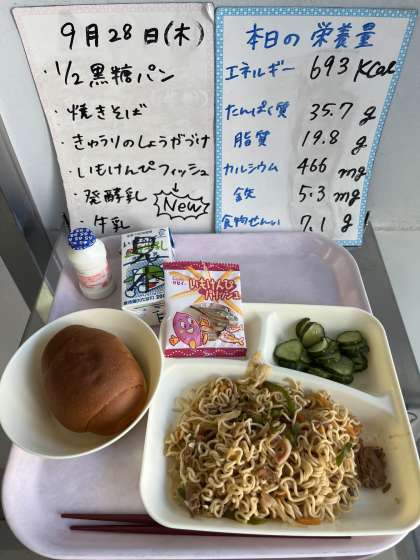 9月28日(木)
・1/2黒糖パン
・焼きそば
・きゅうりのしょうがづけ
・いもけんぴフィッシュ
・発酵乳
New
・牛乳
本日の栄養量
エネルギー 693 Kcal
たんぱく質 35.7 g
脂質 19.8 g
カルシウム 466 mg
鉄 5.3 mg
食物せんい 7.1 g
いもけんぴ
フィッシュ